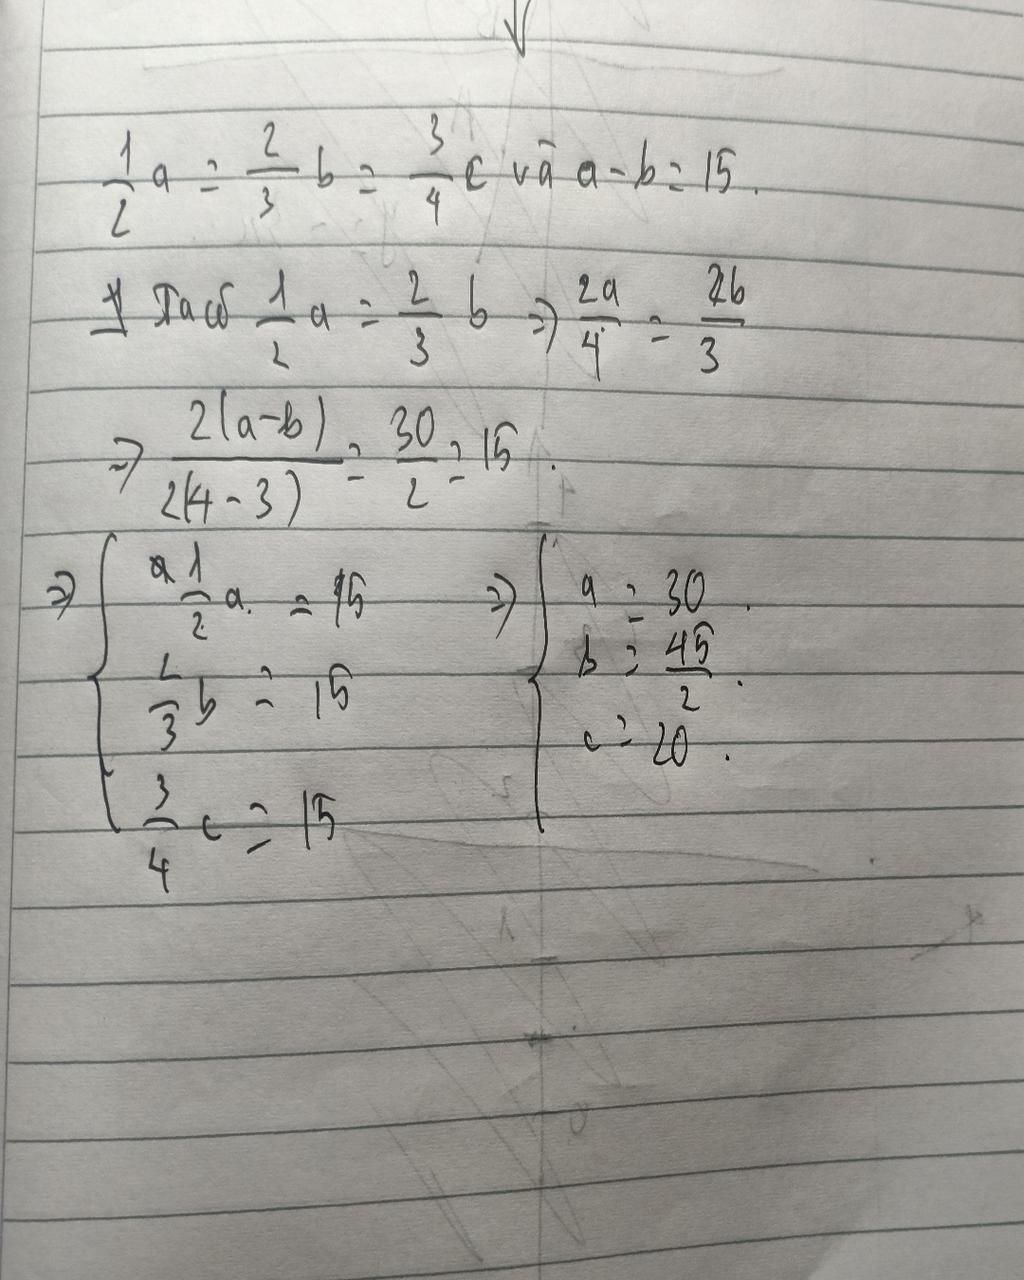 1/2 a = 2/3 b = 3/4 c và a - b = 15.
Ta có 1/2 a = 2/3 b => 2a/4 = 2b/3
=> 2(a-b)/2(4-3) = 30/2 = 15.
=> { 1/2 a. = 15 => { a = 30.
2/3 b = 15 b = 45/2.
3/4 c = 15 c = 20.